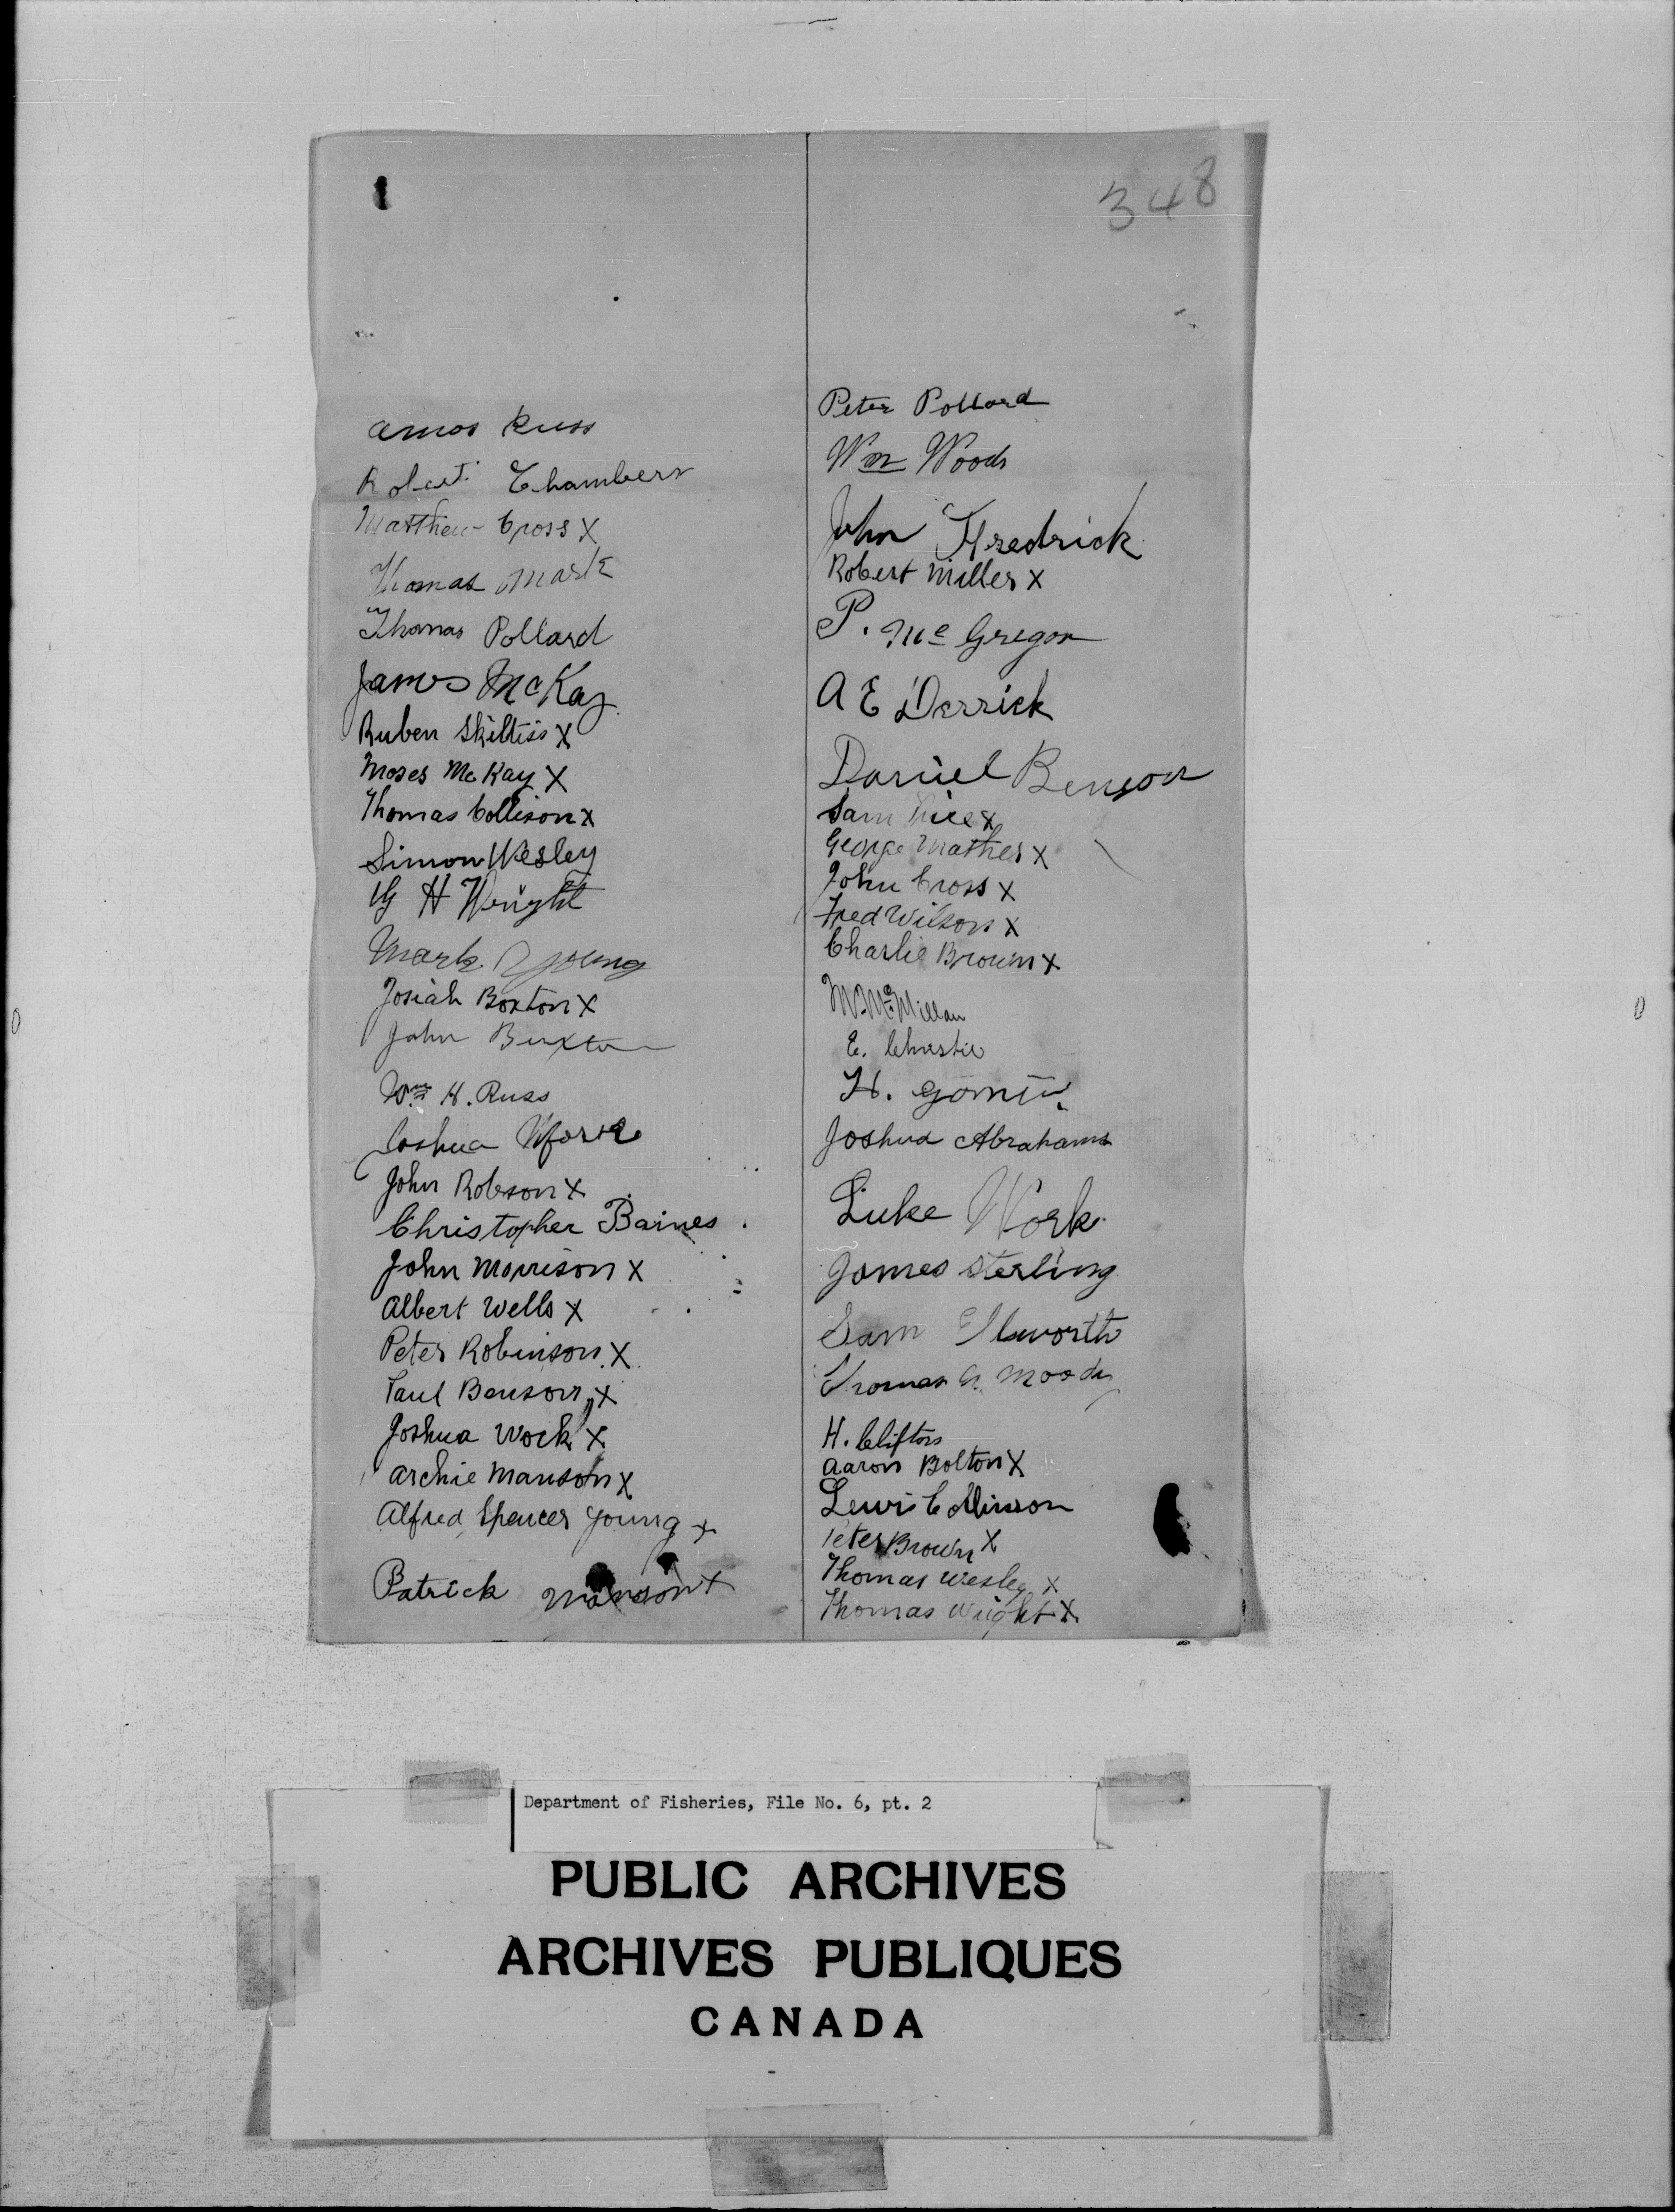 348
Amos Russ
Robert Chambers
Matthew Cross X
Thomas Mark
Thomas Pollard
James McKay
Ruben Skiltiss X
Moses McKay X
Thomas Collison X
Simon Wesley
H Wright
Mark Young
Josiah Boxton X
John Buxton
Wm H. Russ
Joshua
John Robson X
Christopher Baines
John Morrison X
Albert Wells X
Peter Robinson X
Paul Benson X
Joshua Work X
Archie Manson X
Alfred Spencer Young X
Patrick Manson X
Peter Pollard
Wm Woods
John Fredrick
Robert Miller X
P. McGregor
A E Derrick
Daniel Benson
Sam X
George Mather X
John Cross X
Fred Wilson X
Charlie Brown X
W. McMillan
E. Christie
H.
Joshua Abrahams
Luke Work
James Sterling
Sam
Thomas Moody
H. Clifton
Aaron Bolton X
Lewis Collinson
Peter Brown X
Thomas Wesley X
Thomas Wright X
Department of Fisheries, File No. 6, pt. 2
PUBLIC ARCHIVES
ARCHIVES PUBLIQUES
CANADA